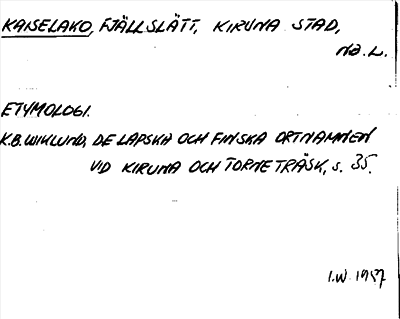 KAISELAKO, FJÄLLSLÄTT, KIRUNA STAD,
NB.L.
ETYMOLOGI.
K.B. WIKLUND, DE LAPSKA OCH FINSKA ORTNAMNEN
VID KIRUNA OCH TORNETRÄSK, S. 35.
I.W. 1957